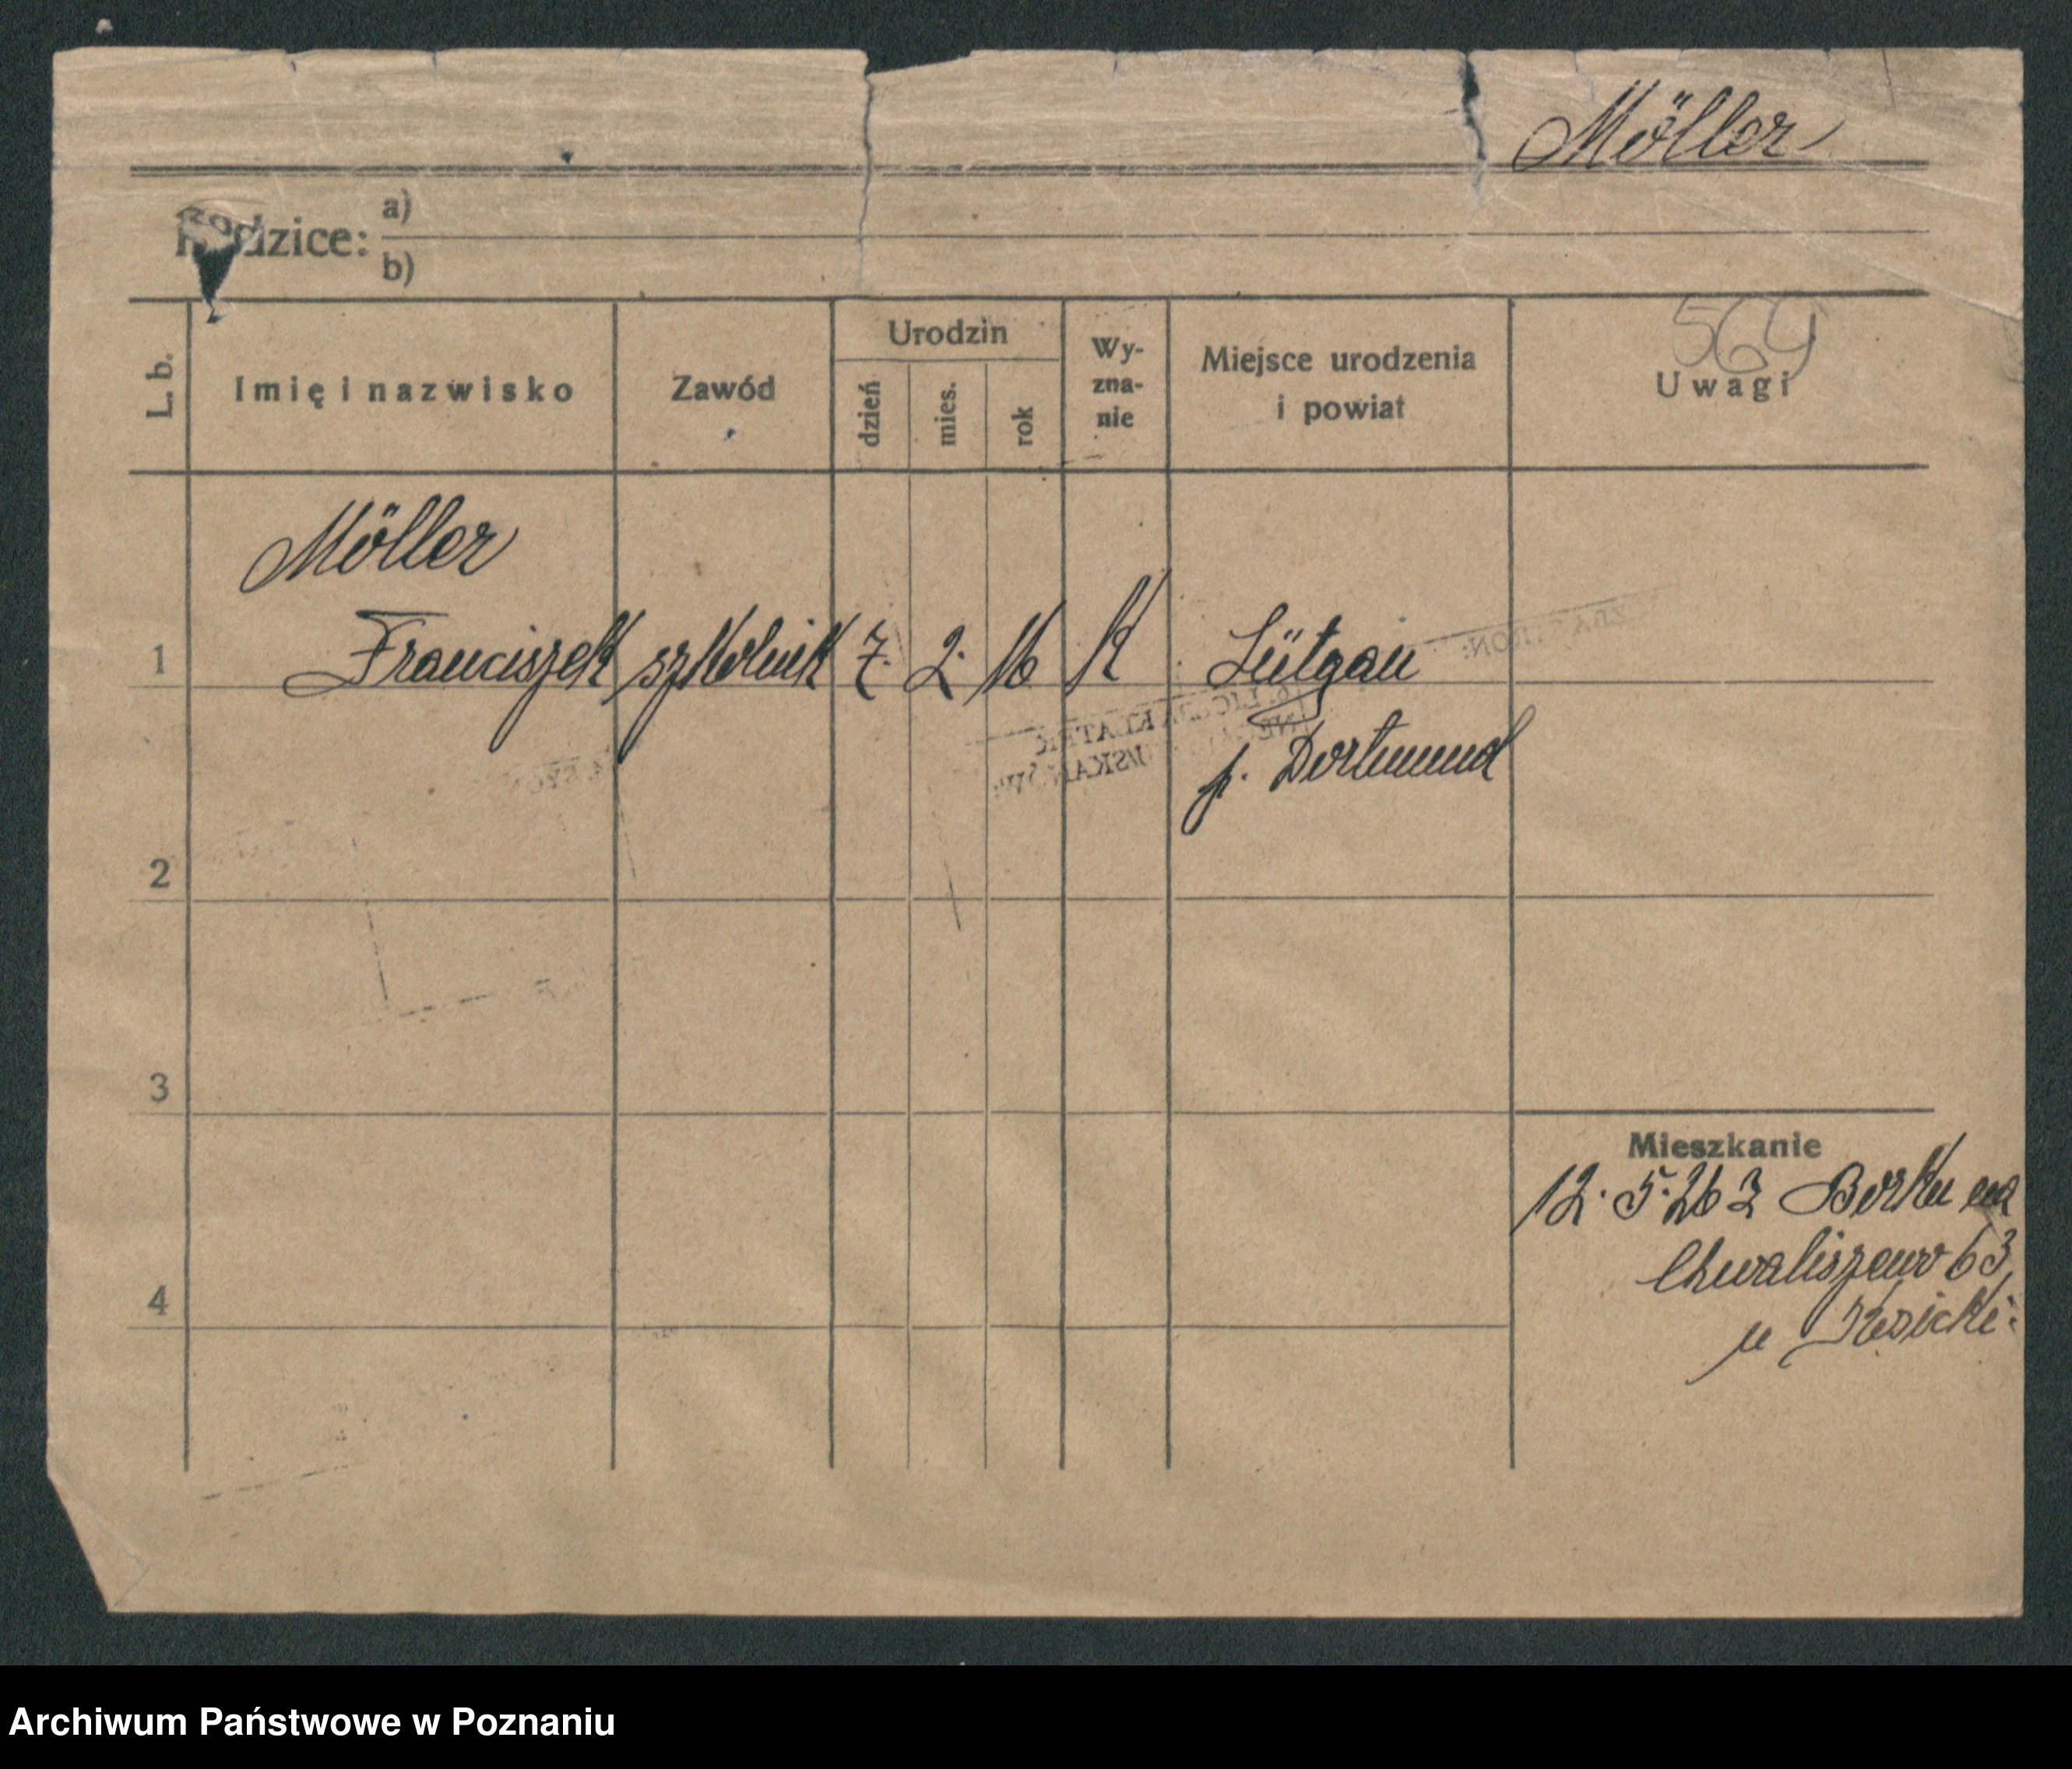 Möller
Rodzice: a)
b)
L. b.
Imię i nazwisko
Zawód
Urodzin
dzień
mies.
rok
Wy-
zna-
nie
Miejsce urodzenia
i powiat
Uwagi
569
Möller
1 Franciszek szkolnik 7. 2. 16 K Lütgau
p. Dortmund
2
3
Mieszkanie
12. 5. 26 z Borku na
Chwaliszewo 63
4
u
Archiwum Państwowe w Poznaniu